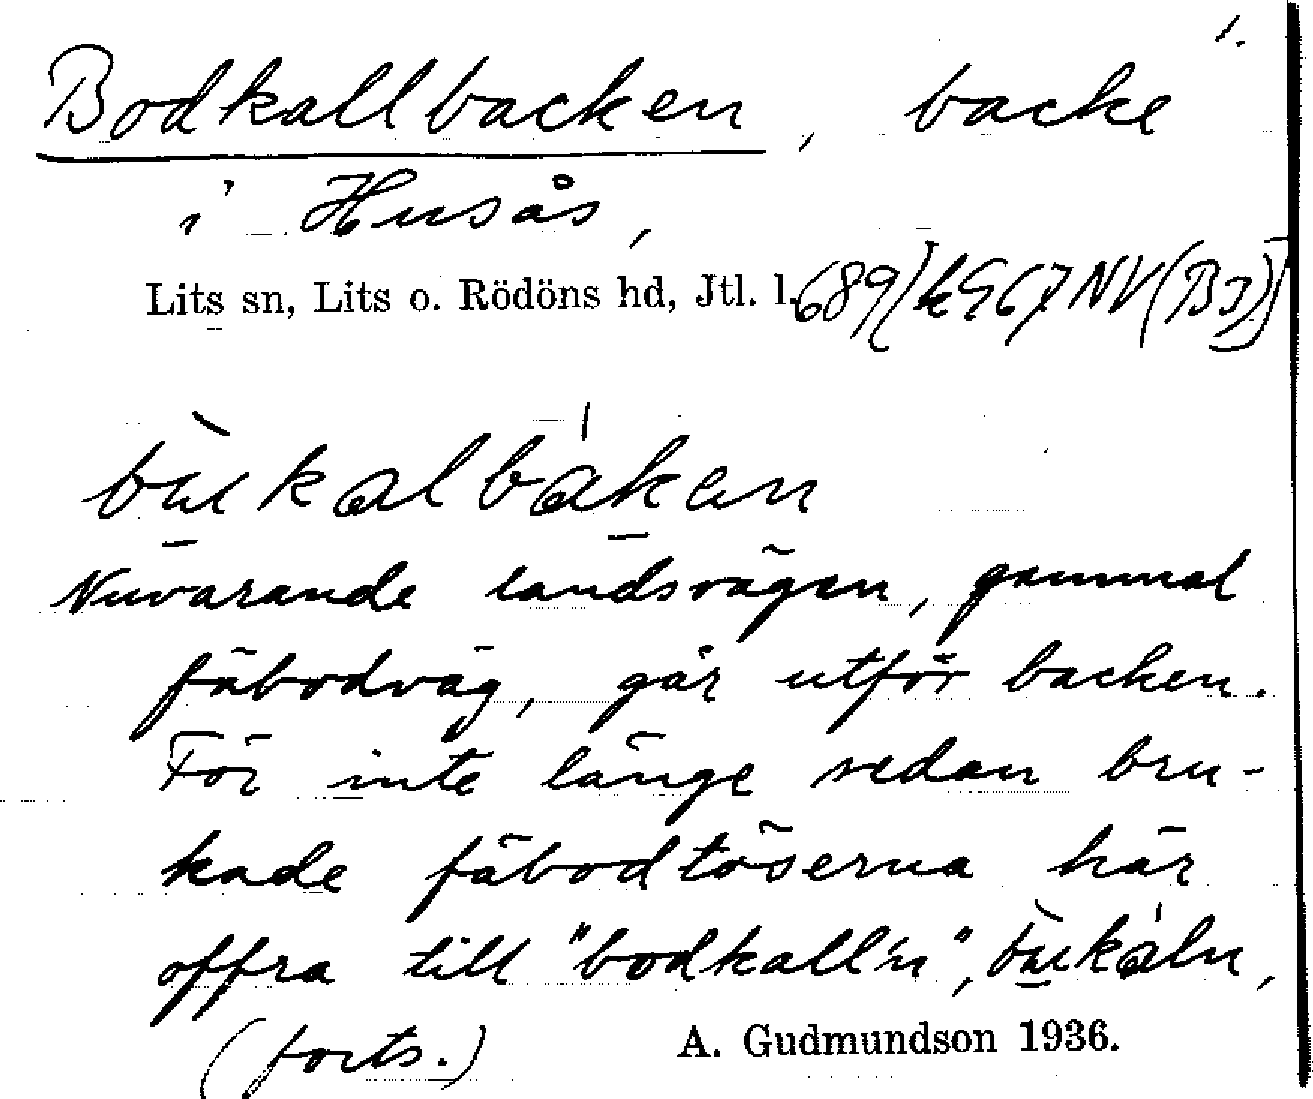 1.
Bodkallbacken, backe
i Husås,
Lits sn, Lits o. Rödöns hd, Jtl. l.
bùkalbákan
Nuvarande landsvägen, gammal
fäbodväg, går utför backen.
För inte länge sedan bru-
kade fäbodtöserna här
offra till "bodkall'n", bùkáln,
(forts.) A. Gudmundson 1936.